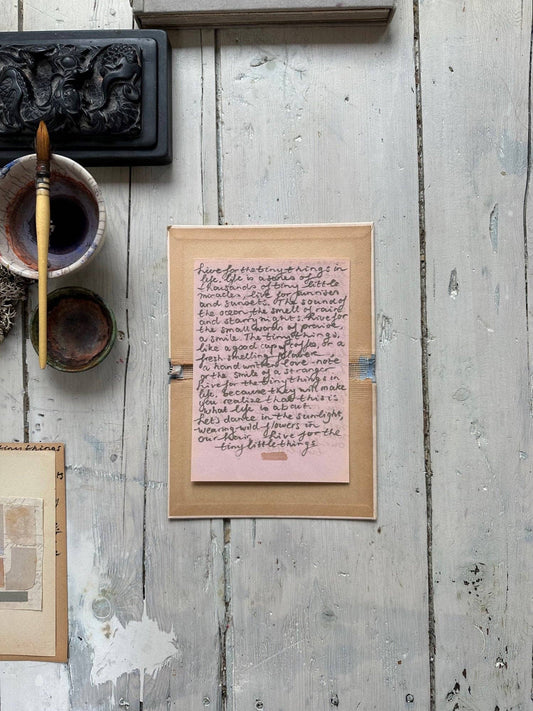 Live for the tiny things in
life. Life is a series of
thousands of tiny little
miracles, live for sunrises
and sunsets. The sound of
the ocean, the smell of rain
and starry nights. Live for
the small words of praise,
a smile. The tiny things,
like a good cup of coffee, or a
fresh smelling flower,
a hand written love-note
or the smile of a stranger
Live for the tiny things in
life, because they will make
you realize that this is
what life is about.
Let's dance in the sunlight,
wearing wild flowers in
our hair. Live for the
tiny little things.
tiny things